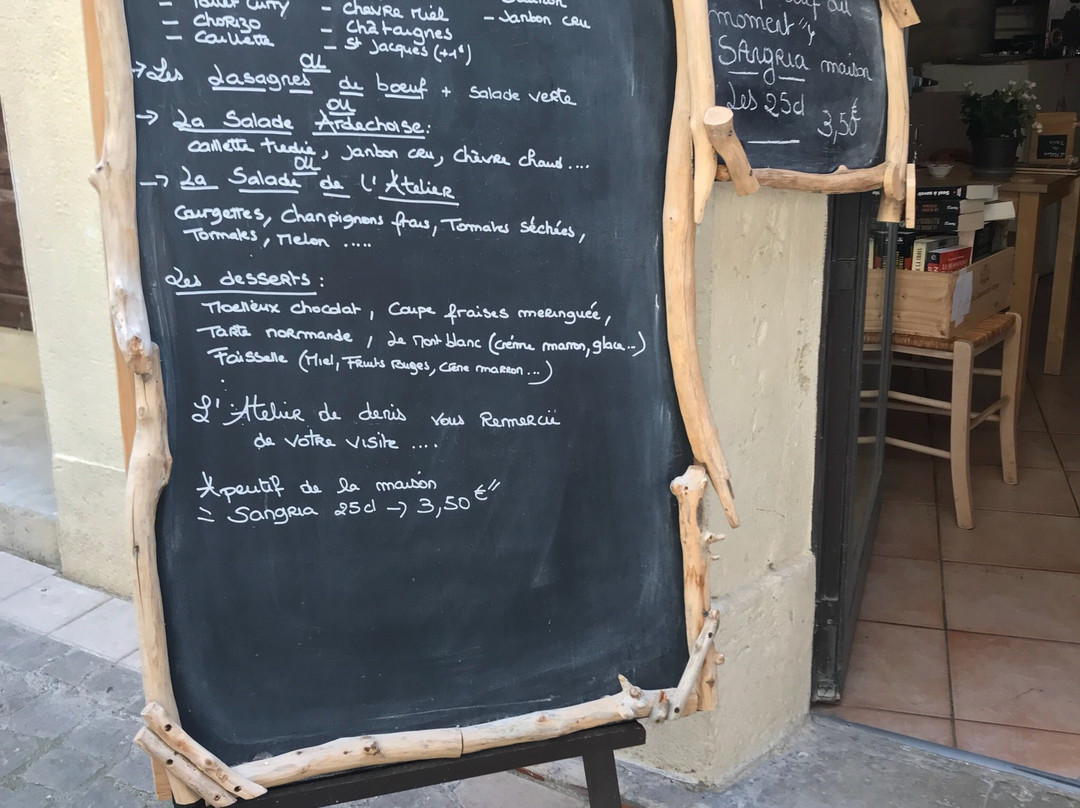 - Poulet Curry - Chèvre Miel
- Chorizo - Châtaignes - Janbon cru
- Caillette - St Jacques (+1€)
ou
→ Les Lasagnes de boeuf + Salade verte
ou
→ La Salade Ardéchoise:
caillette tiedie, janbon cru, chèvre chaud....
ou
→ La Salade de l'Atelier
Courgettes, Chanpignons frais, Tomates Séchées,
Tomates, Melon .....
Les desserts :
Moelleux chocolat, Coupe fraises meringuée,
Tarte normande, Le Mont blanc (créme marron, glace...)
Faisselle (Miel, Fruits rouges, crène marron...)
L'Atelier de denis vous Remercie
de votre visite ....
Apéritif de la maison
= Sangria 25cl → 3,50€"
du
moment"
SAngria maison
Les 25cl
3,50€